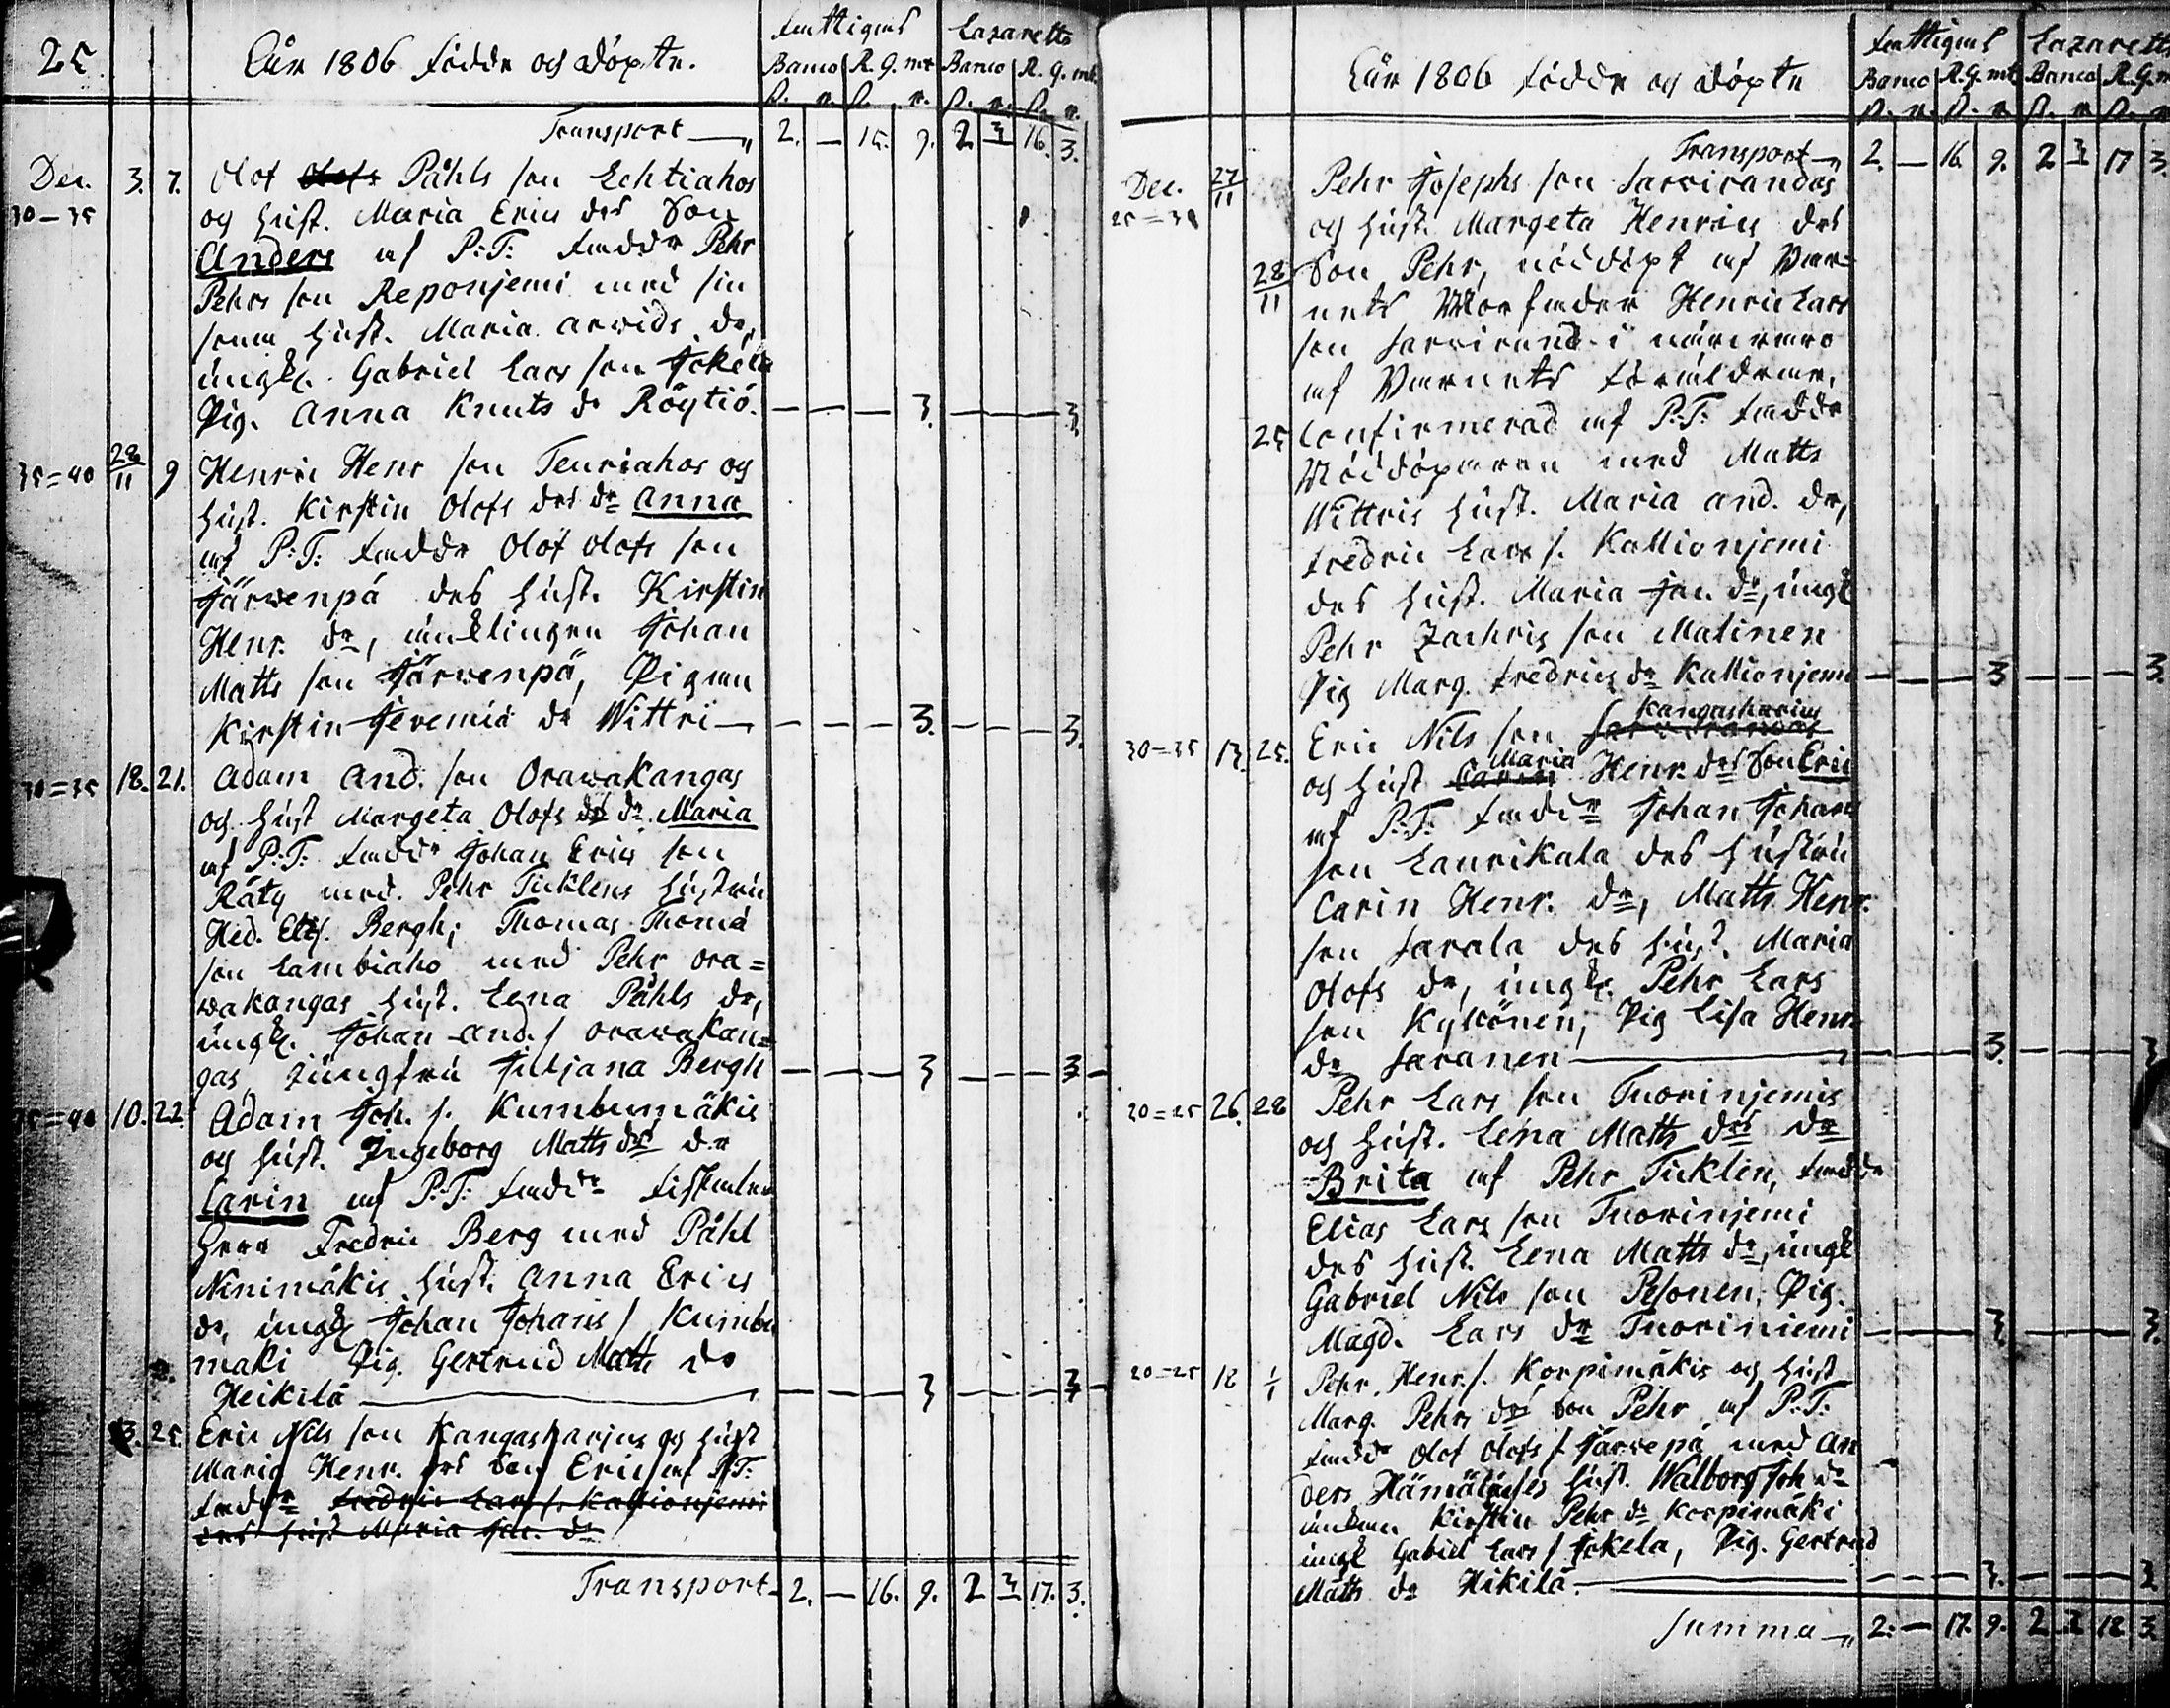 25.
Åår 1806 födde och döpte.
Fattigas Lazaretts
Banco R.G. mt Banco R.G. mt.
ß. r. ß. r. ß. r. ß. r.
Transport 2. — 15. 9. 2 3 16. 3.
Dec. 3. 7. Olof Olofs Påhls son Lehtiahos
30–35 och hust. Maria Erics drs Son
Anders af P:T: Faddr Pehr
Pehrs son Reponjemi med sin
hust. Maria Arvids dr,
ungk. Gabriel Lars son Jokela
Pig. Anna Knuts dr Röytiö. — — — 3. — — — 3.
35=40 28/11 9 Henric Henr son Teuriahos och
hust. Kirstin Olofs drs dr Anna
af P:T: Faddr Olof Olofs son
Järvenpä des hust. Kirstin
Henr. dr, änklingen Johan
Matts son Järvenpä, Pigan
Kirstin Jeremiæ dr Wittri — — — 3. — — — 3.
30=35 18. 21. Adam And. son Orawakangas
och hust Margeta Olofs drs dr Maria
af P:T: Faddr Johan Erics son
Räty med. Pehr Ticklens hustru
Hed. Elis. Bergh; Thomas Thomæ
son Lambiaho med Pehr Ora=
wakangas hust. Lena Påhls dr,
ungk. Johan And. s Orawakan=
gas, Jungfru Juljana Bergh — — — 3 — — — 3
35=40 10. 22. Adam Joh. s. Kumbumäkis
och hust. Ingeborg Matts drs dr
Carin af P:T: Faddr
Herr Fredric Berg med Påhl
Ninimäkis hust. Anna Erics
dr, ungk Johan Johans s Kumbu
mäki Pig. Gertrud Matts dr
Heikilä — — — 3 — — — 3
13. 25. Eric Nils son Kangasharjus och hust
Maria Henr. drs Son Eric af P.T:
Faddr Fredric Lars s. Kallionjemi
des hust Maria Jan. dr
Transport 2. — 16. 9. 2 3 17. 3.
Åår 1806 födde och döpte
Fattigas Lazaretts
Banco R.G. mt Banco R.G. m
ß. r. ß. r. ß. r. ß. r.
Transport 2. — 16. 9. 2 3 17 3.
Dec. 27/11 Pehr Josephs son Sarvirandas
25=30 och hust. Margeta Henrics drs
28/11 Son Pehr, nöddöpt af Bar=
nets Morfader Henric Lars
son Sarvirand i närvaro
af Barnets Föräldrar.
25 Confirmerad af P.T: Faddr
Nöddöparen med Matts
Wittris hust. Maria And. dr,
Fredric Lars s. Kallionjemi
des hust. Maria Jan. dr, ungk
Pehr Zachris son Matinen
Pig Marg. Fredrics dr Kallionjemi — — — 3 — — — 3.
Kangasharjus
30=35 13. 25. Eric Nils son Sarvirandas
Maria
och hust Carin Henr. drs Son Eric
af P:T: Faddr Johan Johans
son Laurikala des hustru
Carin Henr. dr, Matts Henr.
son Sarala des hust. Maria
Olofs dr, ungk. Pehr Lars
son Kykönen, Pig Lisa Henr
dr Saranen — — — 3. — — — 3
20=25 26. 28 Pehr Lars son Tuorinjemis
och hust. Lena Matts drs dr
Brita af Pehr Ticklén, Faddr
Elias Lars son Tuorinjemi
des hust. Lena Matts dr, ungk
Gabriel Nils son Pesonen, Pig.
Magd. Lars dr Tuoriniemi — — — 3. — — — 3.
20=25 18 1/1 Pehr Henr. s. Korpimäkis och hust
Marg. Pehrs drs Son Pehr af P:T.
Faddr Olof Olofs s Järvepä med An
ders Hämäläises hust. Walborg Joh dr
änkan Kirstin Pehr dr Korpimäki
ungk Gabriel Lars s Jokela, Pig. Gertrud
Matts dr Hikilä. — — — 3. — — — 3
Summa 2. — 17. 9. 2 3 18 3